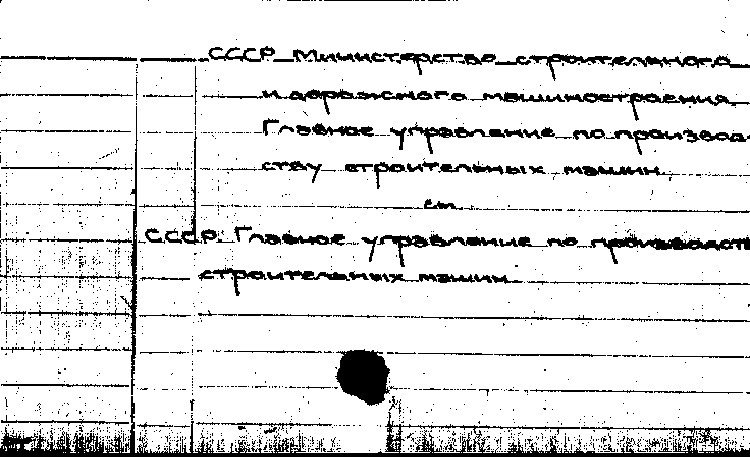 СССР Министерство строительного
и дорожного машиностроения
Главное управление по производ
ству строительных машин.
см.
СССР. Главное управление по производств
строительных машин.